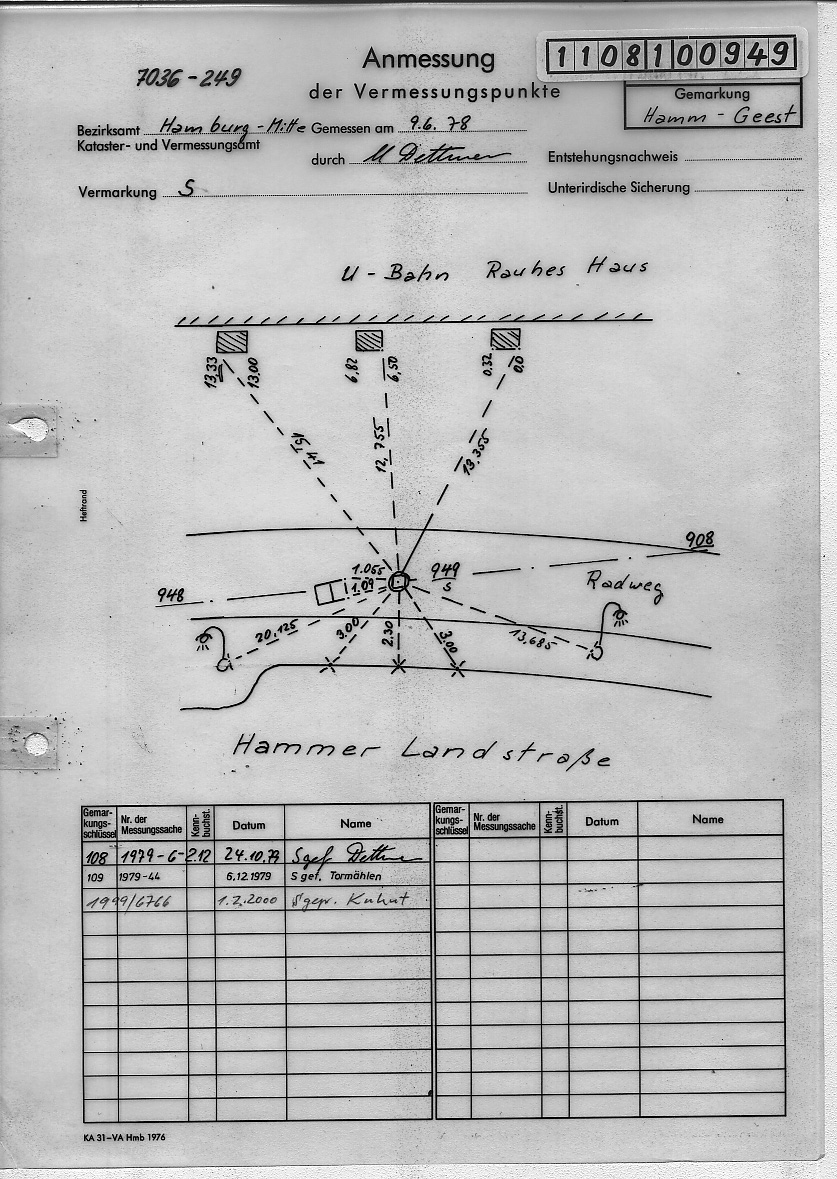 Anmessung
1108100949
7036-249
der Vermessungspunkte
Gemarkung
Hamm - Geest
Bezirksamt Hamburg-Mitte Gemessen am 9.6.78
Kataster- und Vermessungsamt
durch M Dettmer
Entstehungsnachweis
Vermarkung S
Unterirdische Sicherung
U - Bahn Rauhes Haus
13,33
13,00
6,82
6,50
0,32
0,0
15,41
12,755
13,355
Heftrand
908
1.055
949
s
1.09
948
Radweg
20,125
3,00
2,30
3,00
13,685
Hammer Landstraße
Gemar-
kungs-
schlüssel
Nr. der
Messungssache
Kenn-
buchst.
Datum
Name
Gemar-
kungs-
schlüssel
Nr. der
Messungssache
Kenn-
buchst.
Datum
Name
108 1979-6-212 24.10.79 Sgef Dettmer
109 1979-44 6.12.1979 Sgef. Tormählen
1999/6766 1.2.2000 Sgepr. Kuhnt
KA 31-VA Hmb 1976